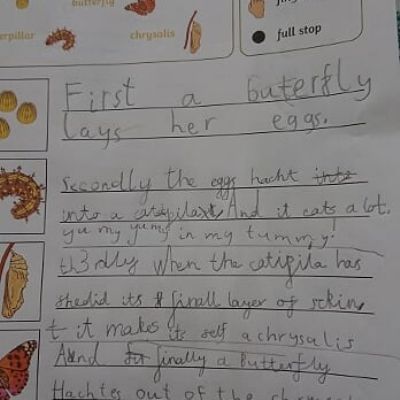 butterfly
erpillar
chrysalis
full stop
First a buterfly
lays her eggs.
Secondly the eggs hacht into
into a catipilar And it eats a lot.
yu my yumy in my tummy!
th3rdly When the catipila has
shedid its finall layer of sckin
t it makes its self a chrysalis
And finally a Butterfly
Hachtes out of the